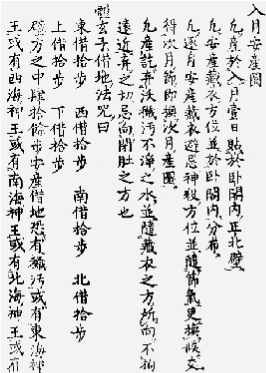 入月安産圖
凡產於入月壹日貼於臥閤內正北壁
凡安產藏衣方位並於臥閤內分布
凡逐月安產藏衣避忌神殺方位並隨節氣更換候交
得次月節即換次月產圖
凡產訖弃沃穢汚不淨之水並隨藏衣之方所向不拘
遠近弃之切忌向閉肚之方也
體玄子借地法咒曰
東借拾步 西借拾步 南借拾步 北借拾步
上借拾步 下借拾步
壁方之中肆拾餘步安産借地恐有穢汚或有東海神
王或有西海神王或有南海神王或有北海神王或有